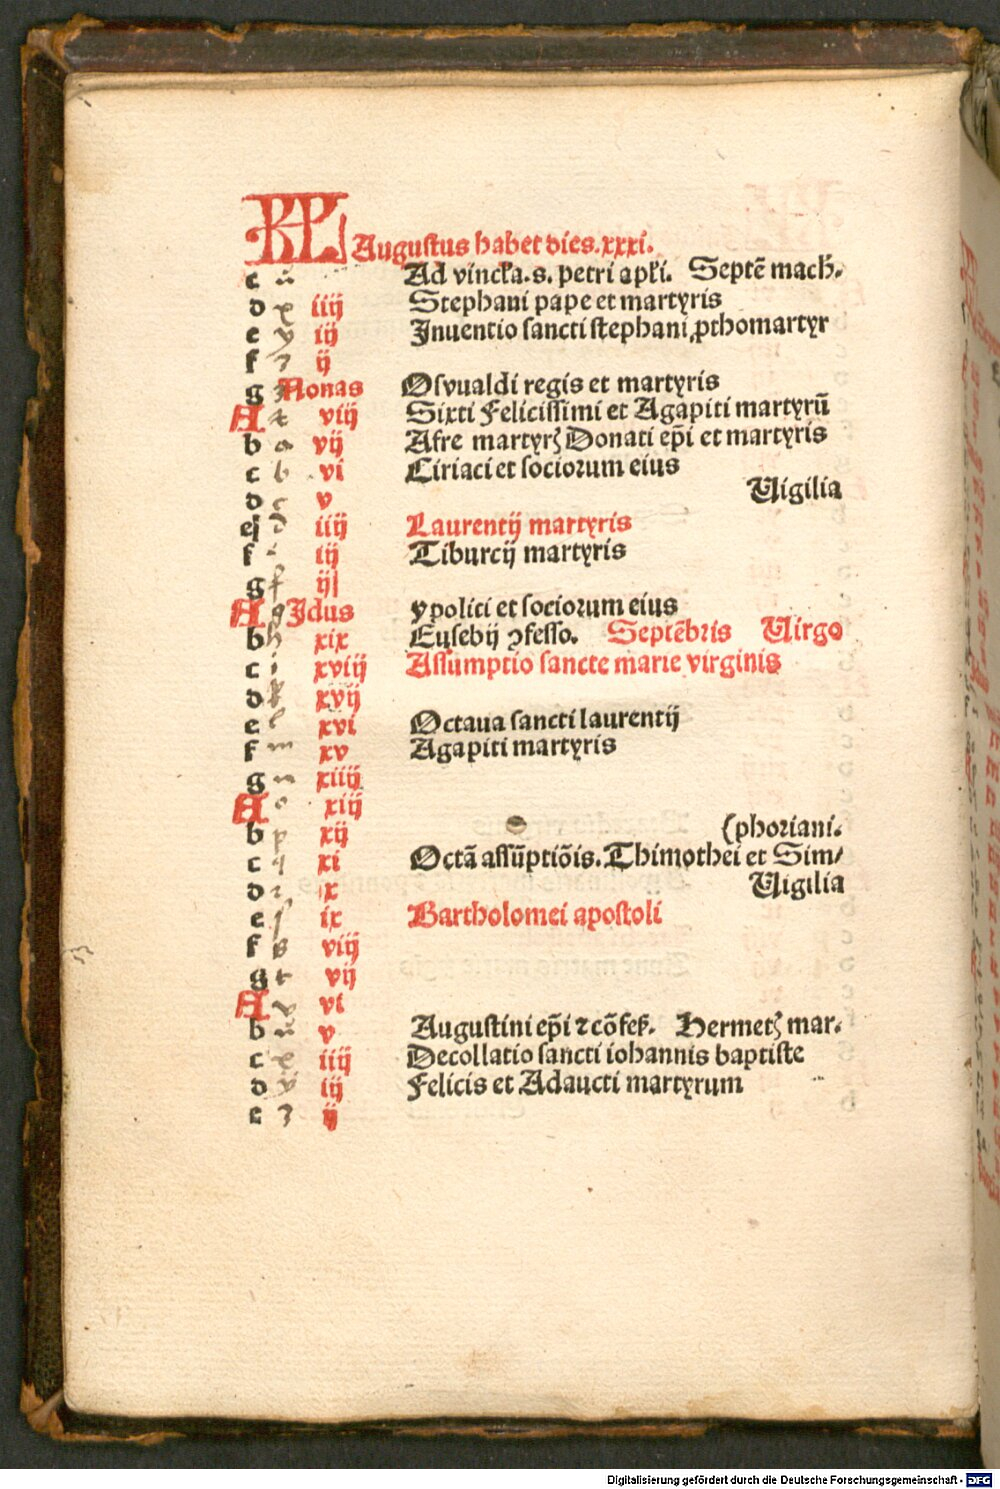 KL Augustus habet dies.xxxi.
c ü Ad vincła.s. petri apłi. Septē mach.
d x iiij Stephani pape et martyris
e y iij Inuentio sancti stephani ꝓthomartyr
f z ij
g Nonas Osvualdi regis et martyris
A t viij Sixti Felicissimi et Agapiti martyrū
b a vij Afre martyrꝫ Donati ep̄i et martyris
c b vi Ciriaci et sociorum eius
d c v Uigilia
e d iiij Laurentij martyris
f iij Tiburcij martyris
g f ij
A g Idus ypoliti et sociorum eius
b h xix Eusebij ꝯfesso. Septēbris Uirgo
c i xviij Assumptio sancte marie virginis
d k xvij
e l xvi Octaua sancti laurentij
f m xv Agapiti martyris
g n xiiij
A o xiij
b p xij (phoriani.
c q xi Octā assūptiōis. Thimothei et Sim/
d x Uigilia
e ſ ix Bartholomei apostoli
f viij
g t vij
A vi
b v Augustini ep̄i ⁊ cōfeß. Hermetꝫ mar.
c x iiij Decollatio sancti iohannis baptiste
d ÿ iij Felicis et Adaucti martyrum
e z ij
Digitalisierung gefördert durch die Deutsche Forschungsgemeinschaft - DFG